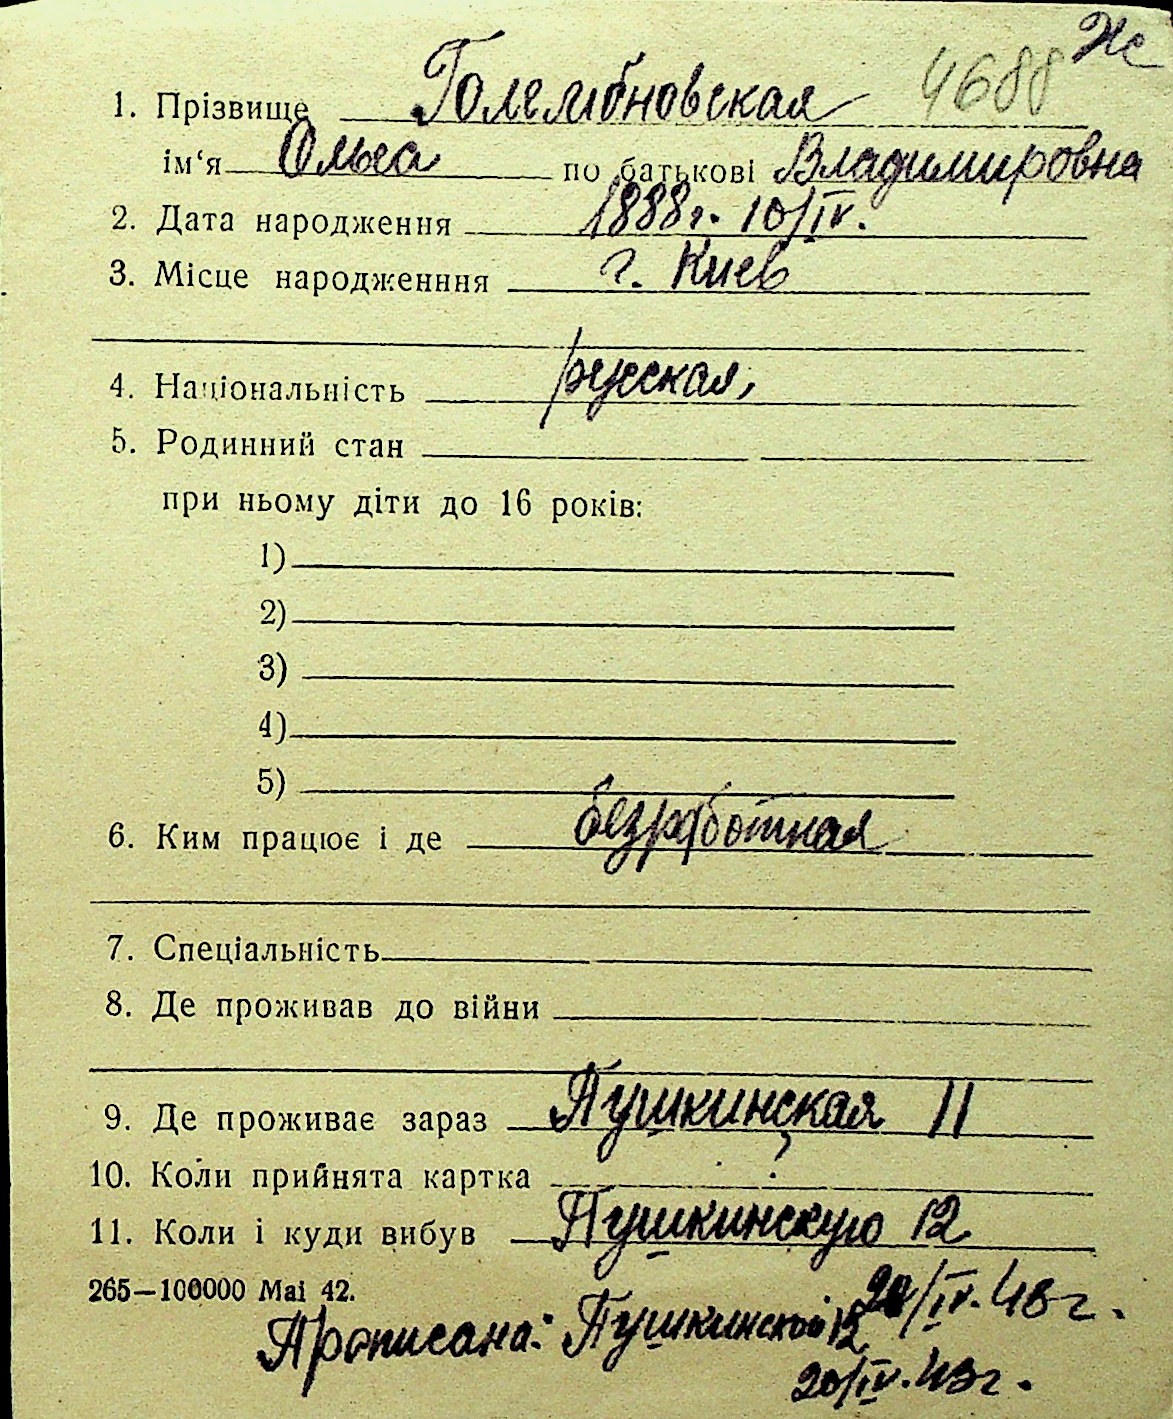 Же
4688
1. Прізвище Голембновская
ім‘я Ольга по батькові Владимировна
2. Дата народження 1888г. 10/IV.
3. Місце народженння г. Киев
4. Національність русская,
5. Родинний стан
при ньому діти до 16 років:
1)
2)
3)
4)
5)
6. Ким працює і де безработная
7. Спеціальність
8. Де проживав до війни
9. Де проживає зараз Пушкинская 11
10. Коли прийнята картка ?
11. Коли і куди вибув Пушкинскую 12
265—100000 Mai 42. 20/IV.43г.
Прописана: Пушкинской 12
20/IV.43г.